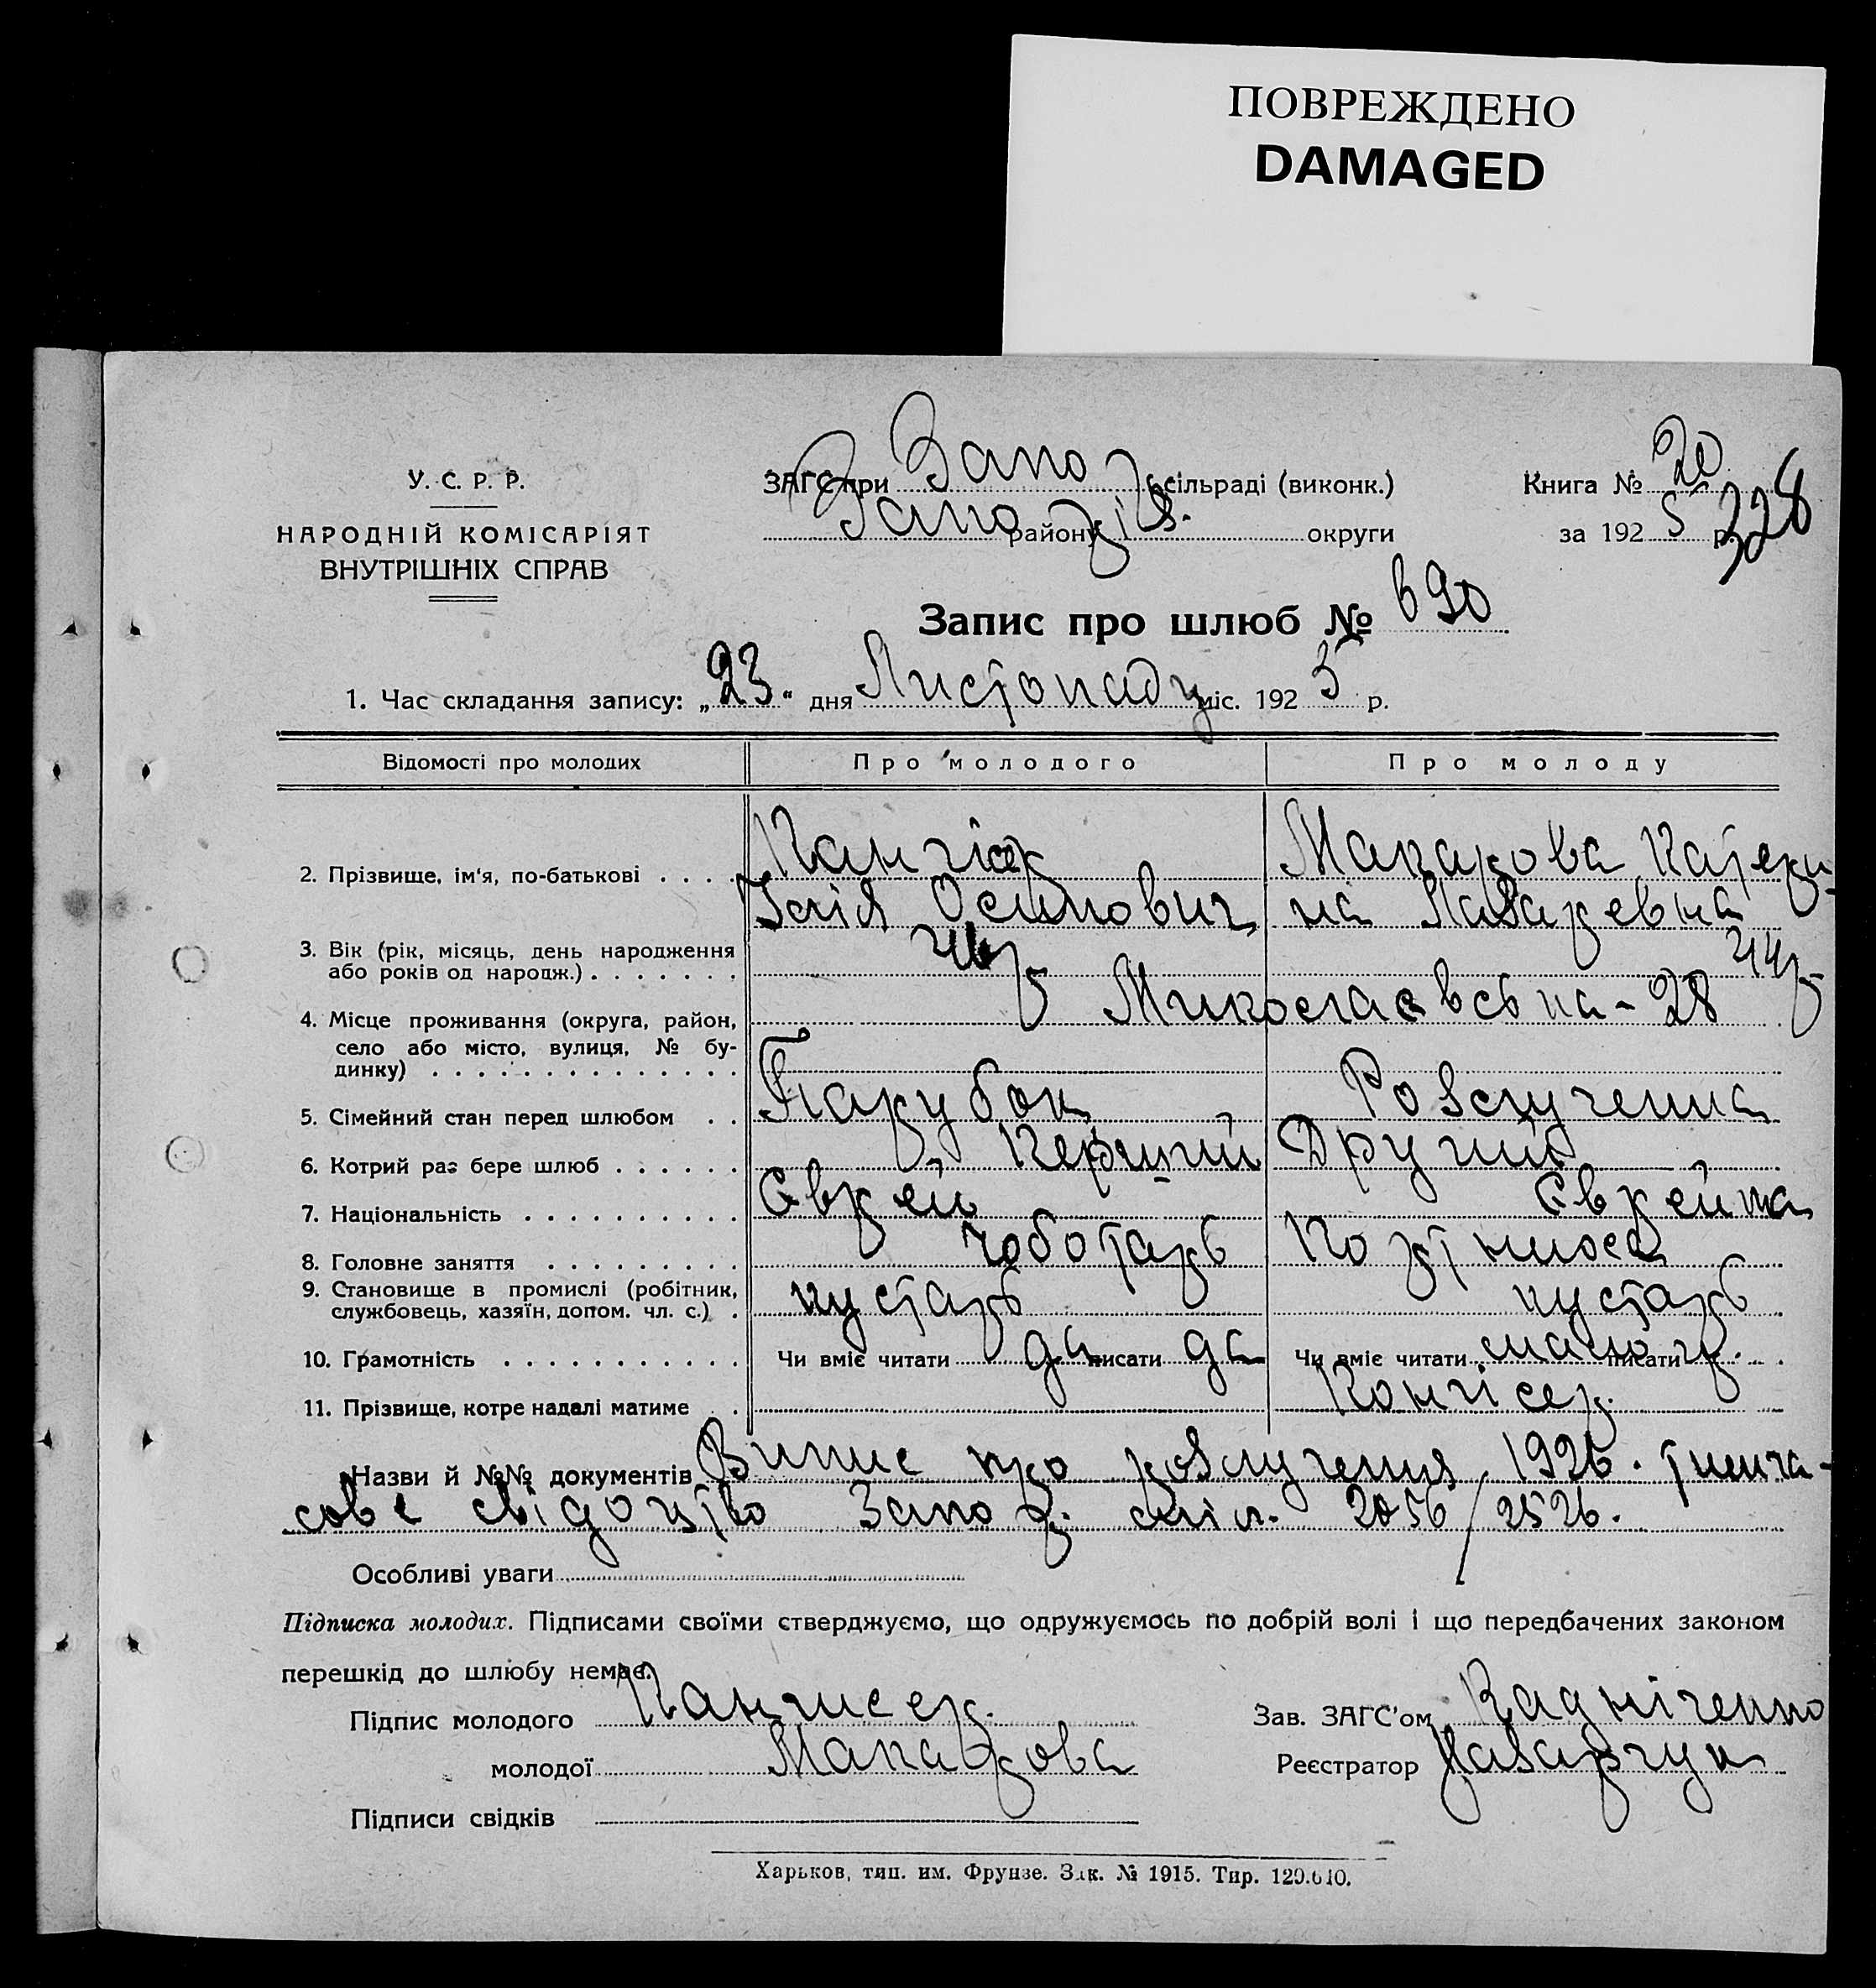 ПОВРЕЖДЕНО
DAMAGED
У. С. Р. Р.
НАРОДНІЙ КОМІСАРІЯТ
ВНУТРІШНІХ СПРАВ
ЗАГС при Запор. сільраді (виконк.)
Запоріз. району округи
Книга № 20
за 1925 р. 328
Запис про шлюб № 690
1. Час складання запису: „23“ дня Листопаду міс. 1925 р.
Відомості про молодих
Про молодого
Про молоду
2. Прізвище, ім'я, по-батькові . . . .
Ілія Осипович
Макарова Катери-
на Лазаревна
3. Вік (рік, місяць, день народження
або років од народж.) . . . . . . .
44 р
4. Місце проживання (округа, район,
село або місто, вулиця, № бу-
динку) . . . . . . . . . . . . . .
Миколаєвська - 28
5. Сімейний стан перед шлюбом . .
Парубок
Розлученна
6. Котрий раз бере шлюб . . . . . .
Перший
Другий
7. Національність . . . . . . . . . .
Єврей
Єврейка
8. Головне заняття . . . . . . . . .
Чоботарь
9. Становище в промислі (робітник,
службовець, хазяїн, допом. чл. с.) .
кустарь
кустарь
10. Грамотність . . . . . . . . . . .
Чи вміє читати да писати да
Чи вміє читати малогр. писати
11. Прізвище, котре надалі матиме .
Конгісер.
Назви й №№ документів Випис про розлучення 1926. тимча-
сове свідоцтво Запор. міл. 2056/2526.
Особливі уваги
Підписка молодих. Підписами своїми стверджуємо, що одружуємось по добрій волі і що передбачених законом
перешкід до шлюбу немає.
Підпис молодого Кангисер.
молодої Макарова
Підписи свідків
Зав. ЗАГС'ом Радніченко
Реєстратор Назарчук
Харьков, тип. им. Фрунзе. Зак. № 1915. Тир. 129.640.